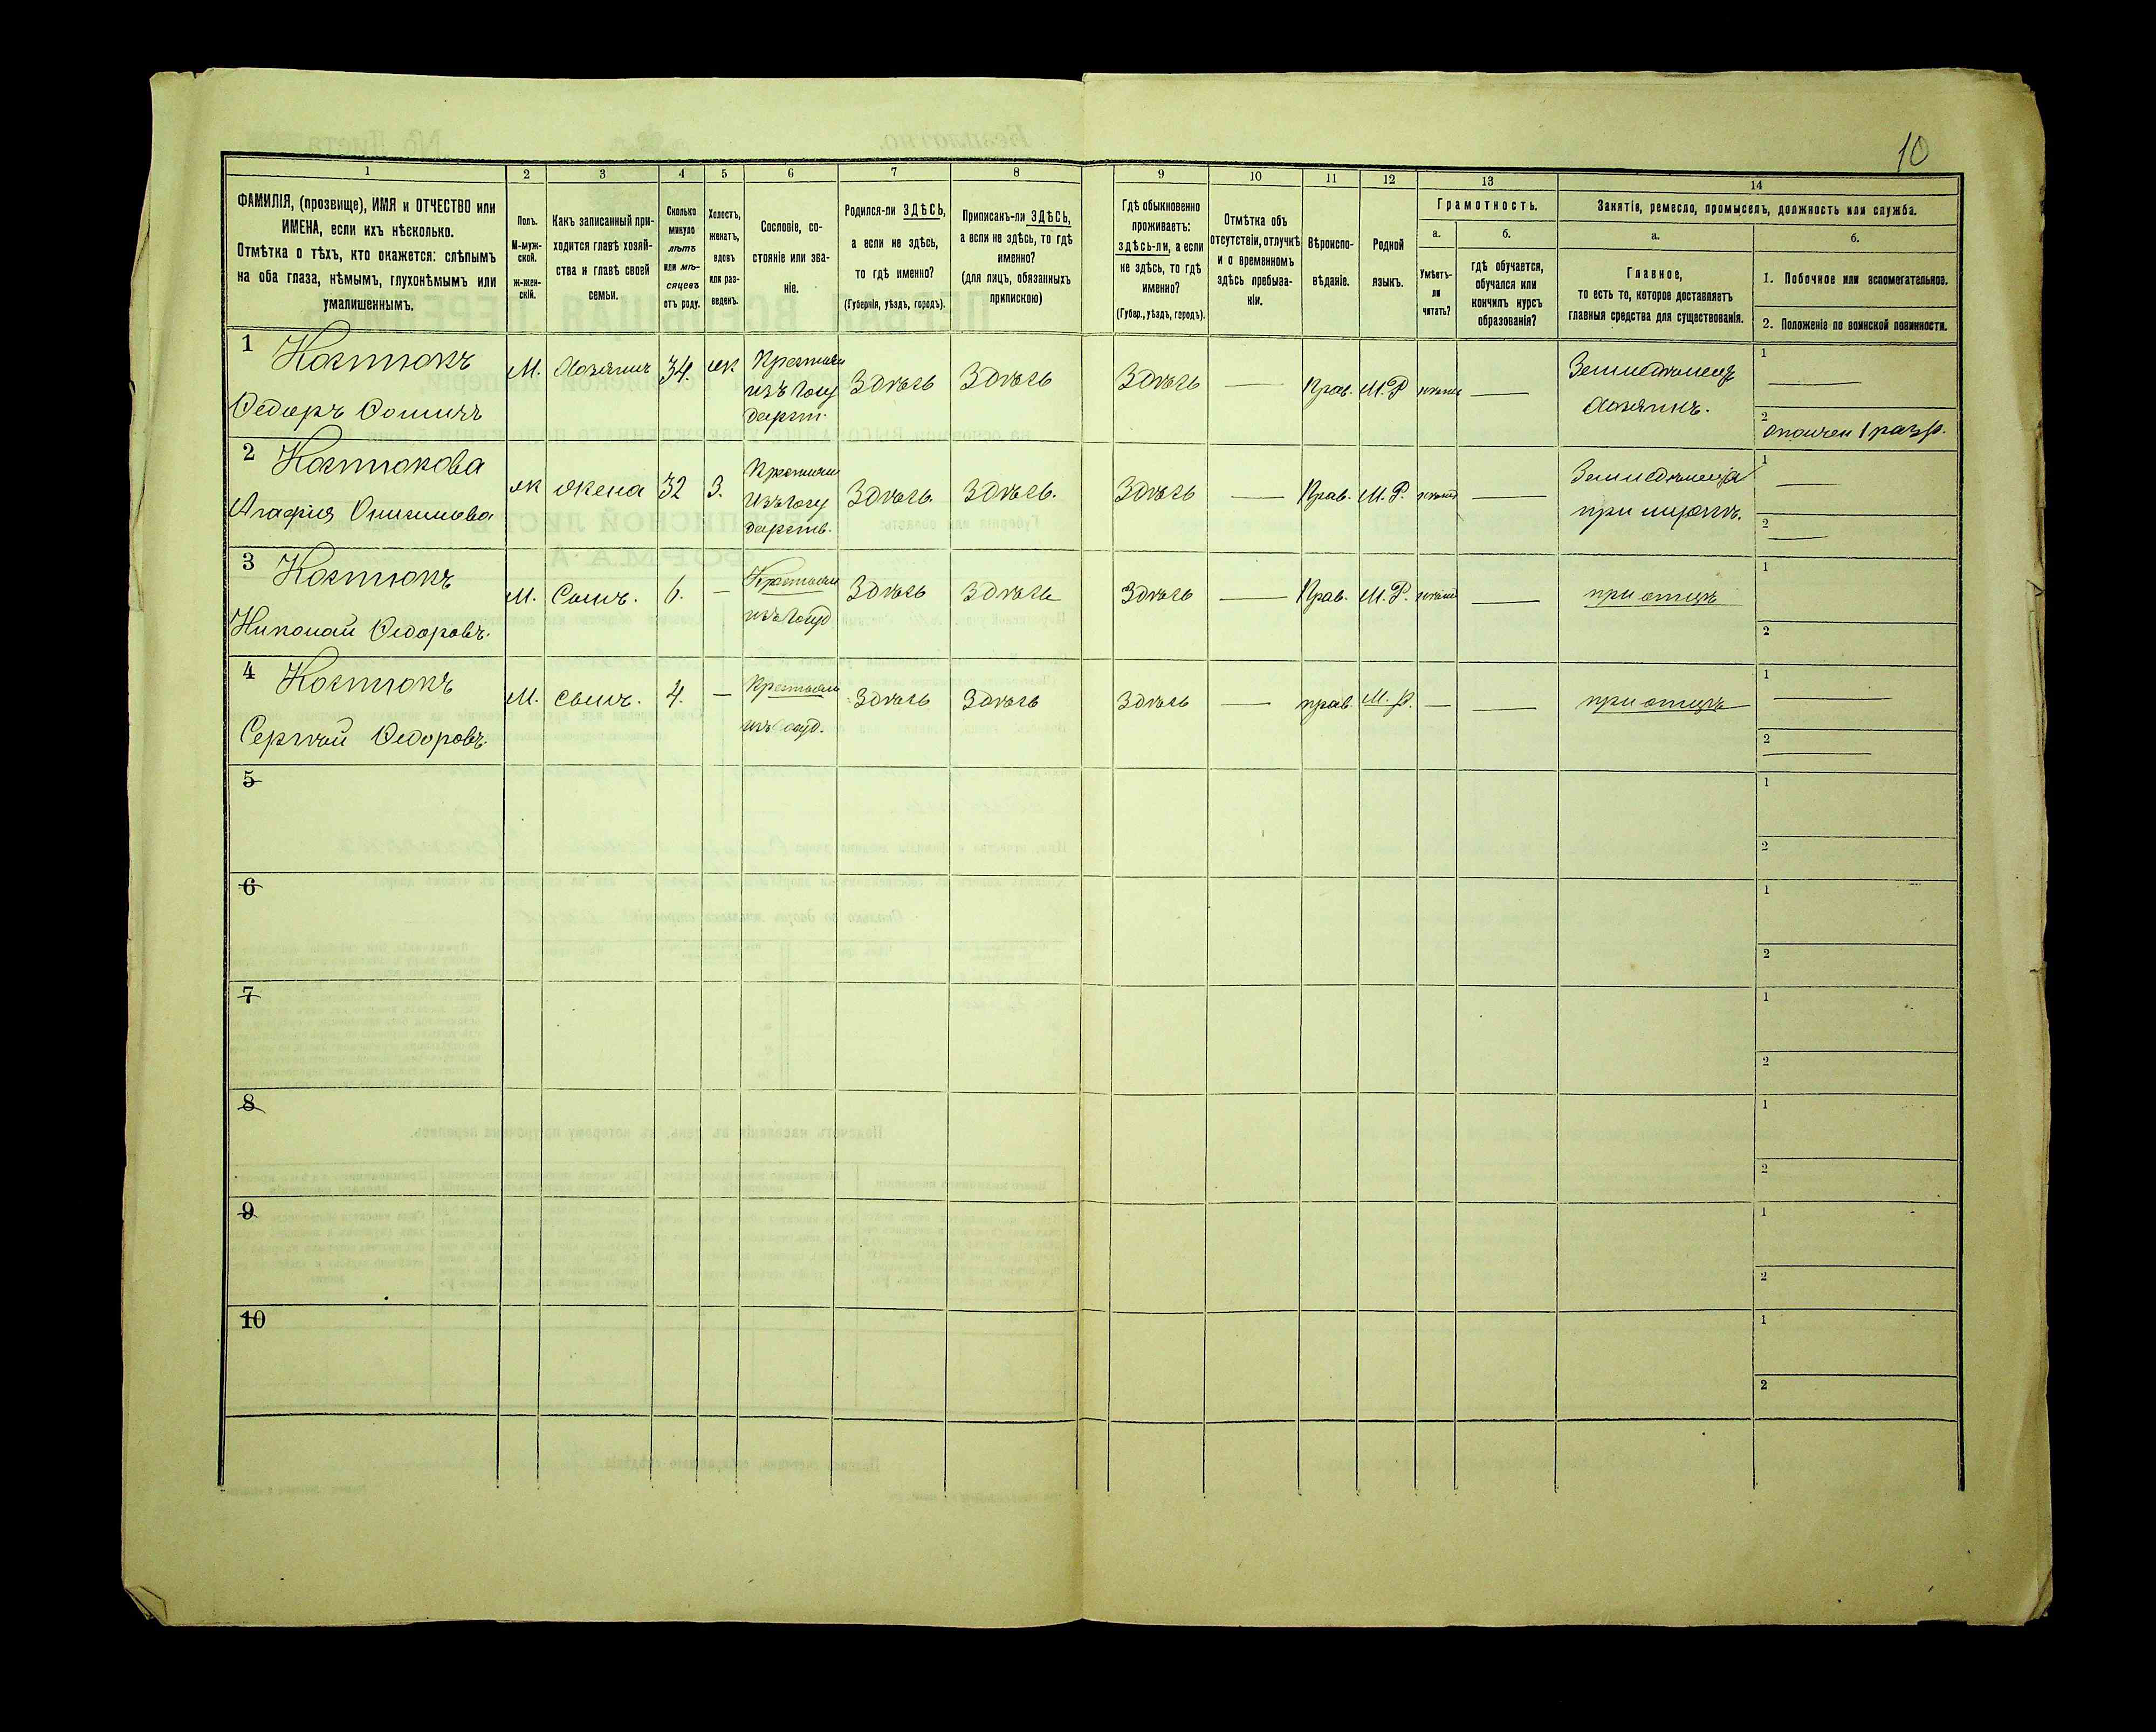 10
1
ФАМИЛІЯ, (прозвище), ИМЯ и ОТЧЕСТВО или
ИМЕНА, если ихъ нѣсколько.
Отмѣтка о тѣхъ, кто окажется: слѣпымъ
на оба глаза, нѣмымъ, глухонѣмымъ или
умалишеннымъ.
2
Полъ.
М-муж-
ской.
ж-жен-
скій.
3
Какъ записанный при-
ходится главѣ хозяй-
ства и главѣ своей
семьи.
4
Сколько
минуло
лѣтъ
или мѣ-
сяцевъ
отъ роду.
5
Холостъ,
женатъ,
вдовъ
или раз-
веденъ.
6
Сословіе, со-
стояніе или зва-
ніе.
7
Родился-ли ЗДѢСЬ,
а если не здѣсь,
то гдѣ именно?
(Губернія, уѣздъ, городъ).
8
Приписанъ-ли ЗДѢСЬ,
а если не здѣсь, то гдѣ
именно?
(для лицъ, обязанныхъ
припискою)
9
Гдѣ обыкновенно
проживаетъ:
здѣсь-ли, а если
не здѣсь, то гдѣ
именно?
(Губер., уѣздъ, городъ).
10
Отмѣтка объ
отсутствіи, отлучкѣ
и о временномъ
здѣсь пребыва-
ніи.
11
Вѣроиспо-
вѣданіе.
12
Родной
языкъ.
13
Грамотность.
а.
Умѣетъ-
ли
читать?
б.
гдѣ обучается,
обучался или
кончилъ курсъ
образованія?
14
Занятіе, ремесло, промыселъ, должность или служба.
а.
Главное,
то есть то, которое доставляетъ
главныя средства для существованія.
б.
1. Побочное или вспомогательное.
2. Положеніе по воинской повинности.
1
Костюкъ
Федоръ Фомичъ
М.
Хозяинъ
34
ж
Крестьян
изъ госу
дарст.
Здѣсь
Здѣсь
Здѣсь
Прав.
М.Р
Земледѣлецъ
Хозяинъ.
1
2
ополчен 1 разр.
2
Костюкова
Агафия
ж
жена
32
З.
Крестьян
Изъ госу
дарств.
Здѣсь.
Здѣсь.
Здѣсь
Прав.
М.Р.
при мужѣ.
1
2
3
Костюкъ
Николай Федоровъ.
М.
Сынъ.
6.
Крестьян
изъ госуд
Здѣсь
Здѣсь
Здѣсь
Прав.
М.Р.
при отцѣ
1
2
4
Костюкъ
Сергѣй Федоровъ.
М.
Сынъ.
4.
Крестьян
изъ госуд.
Здѣсь
Здѣсь
Здѣсь
прав
М.р.
при отцѣ
1
2
5
1
2
6
1
2
7
1
2
8
1
2
9
1
2
10
1
2